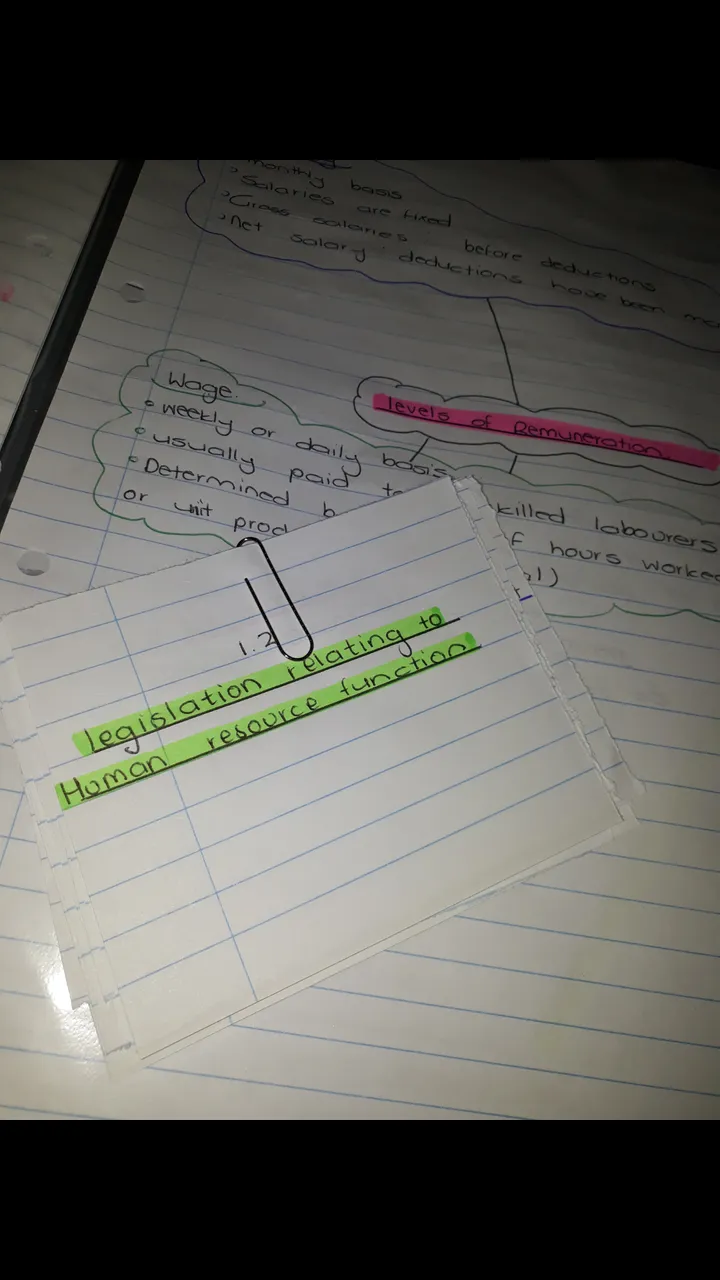 monthly basis
Salaries are fixed
Gross salaries : before deductions
Net salary : deductions have been
Wage:
weekly or daily basis
usually paid killed labourers
Determined f hours worked
or unit prod
levels of Remuneration
1.2
legislation relating to
Human resource function